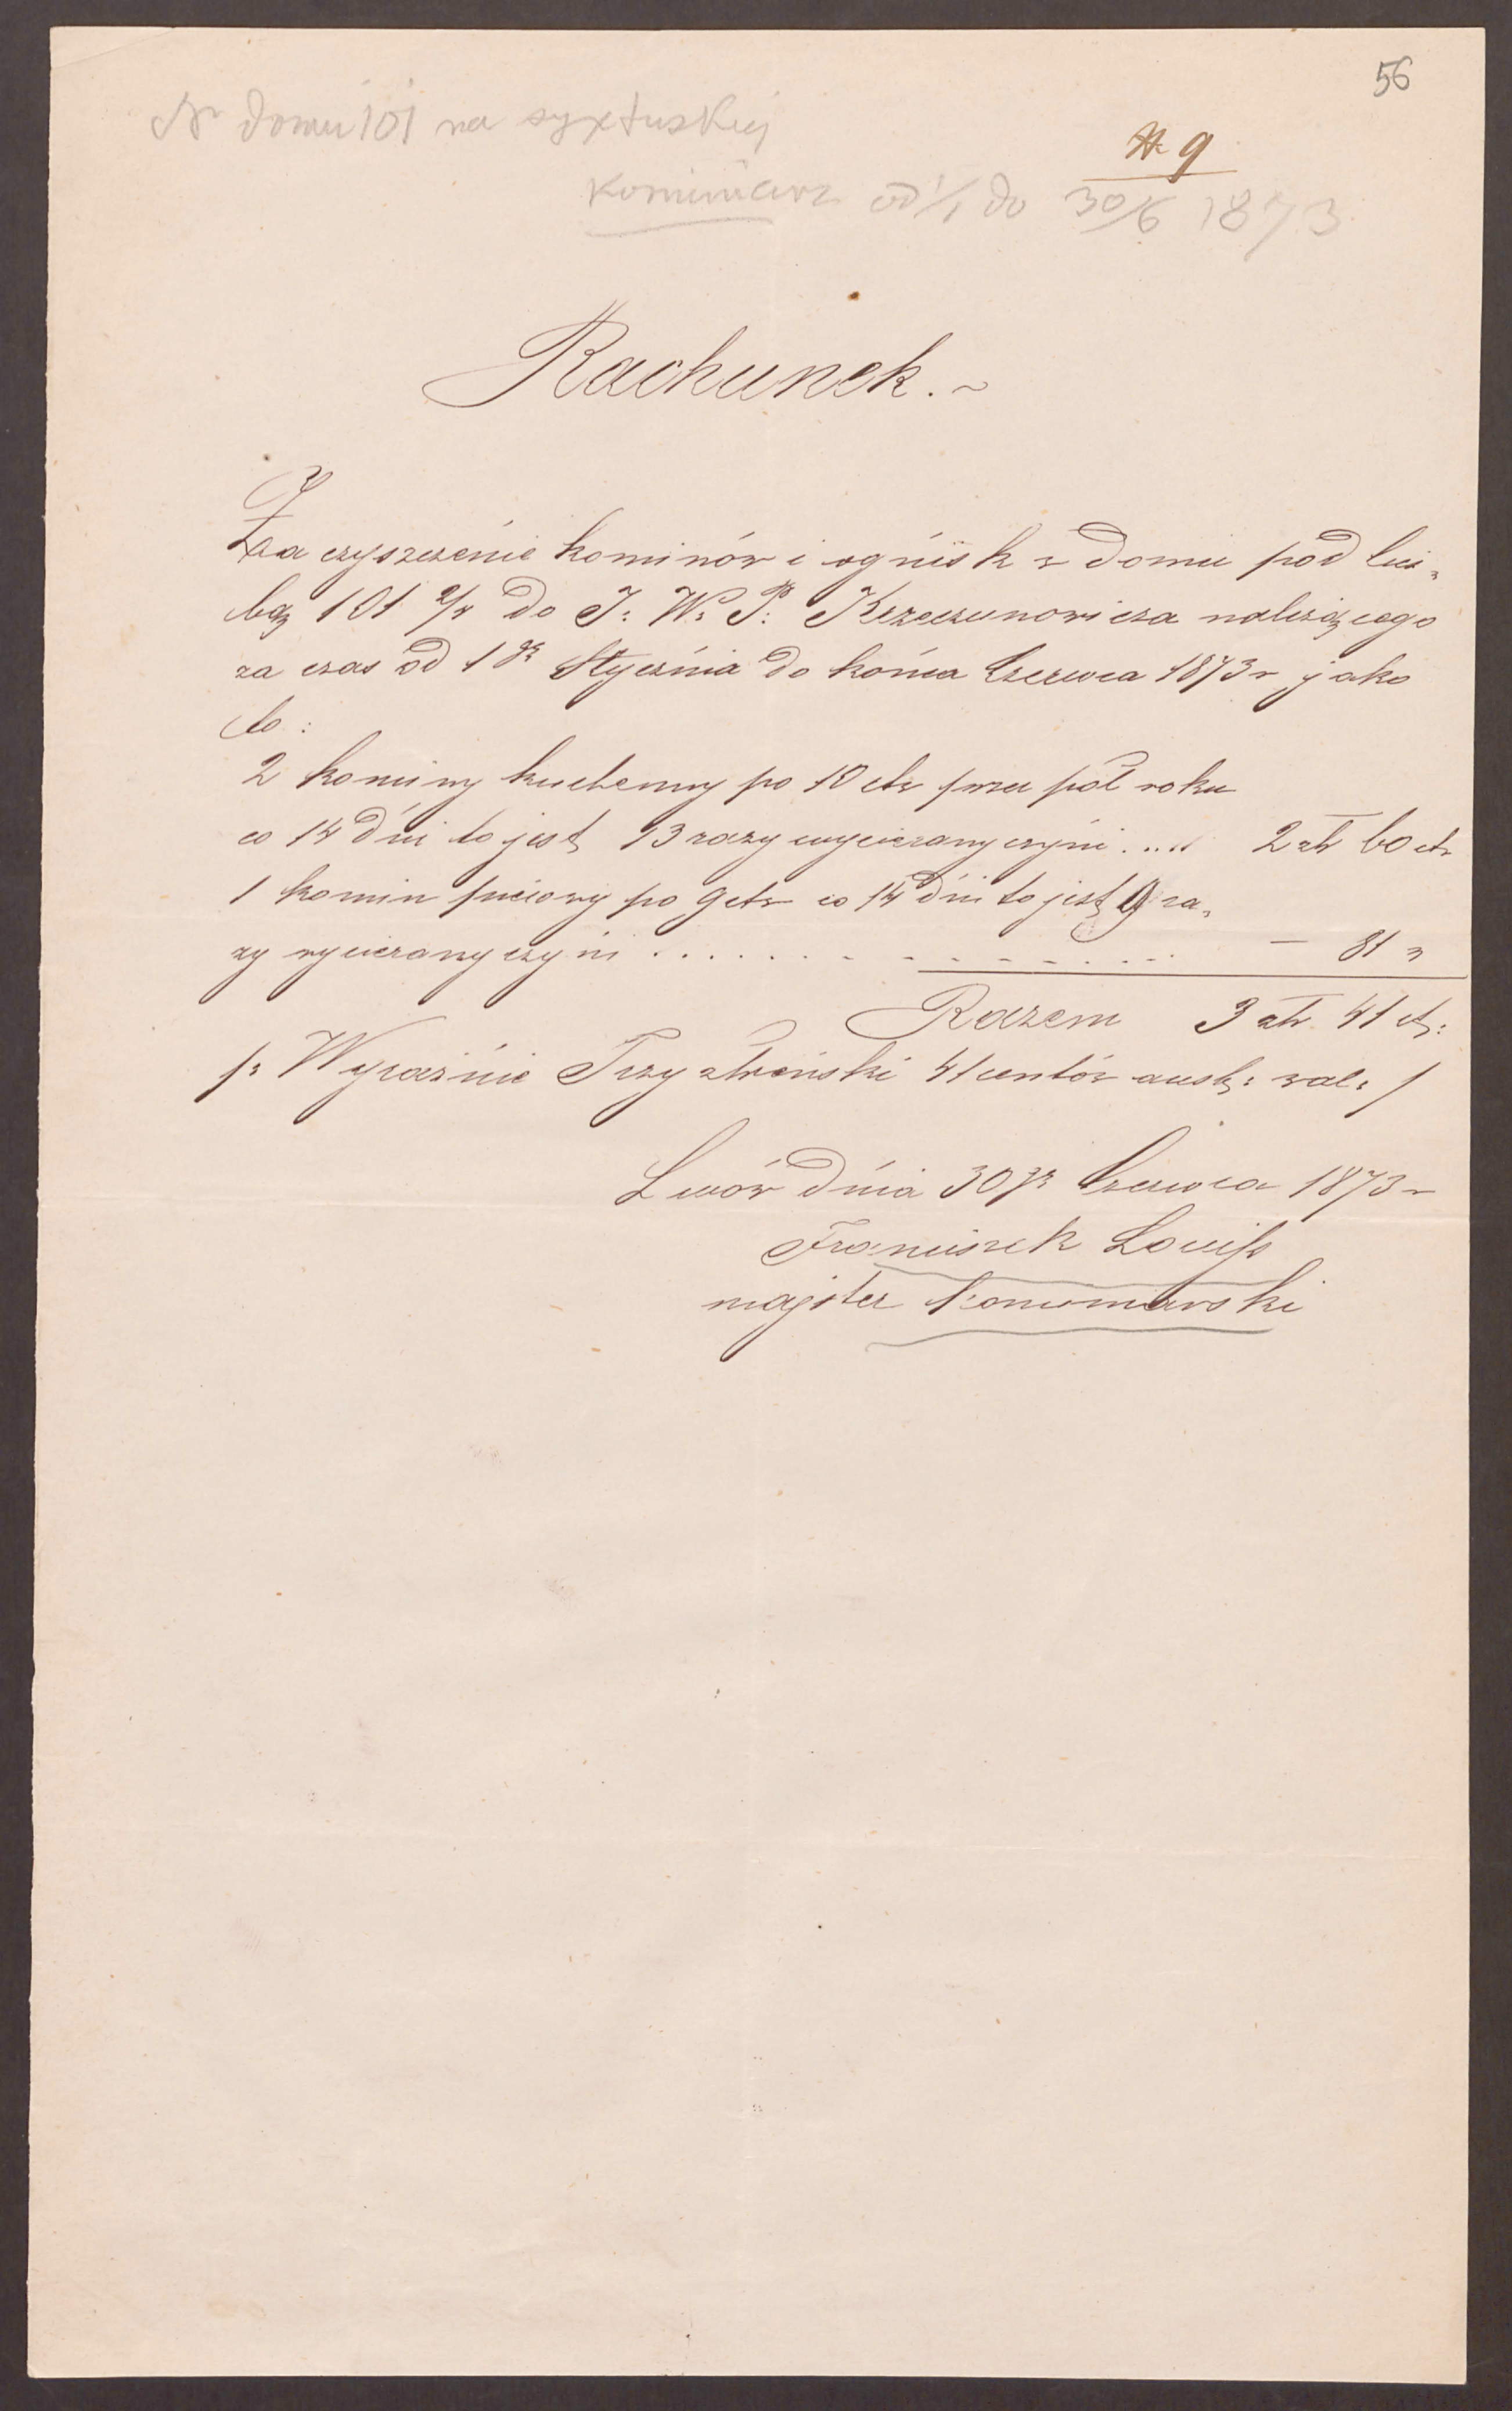 56
Nr domu 101 na syxtuskiej
N. 9
Kominiarz od 1/1 do 30/6 1873
Rachunek.~
Za czyszczenie kominów i ognisk w domu pod licz=
bą 101 2/4 do J: W: P: Krzeczunowicza należącego
za czas od 1go Stycznia do końca Czerwca 1873r jako
to:
2 kominy kuchenny po 10 ctr przez pół roku
co 14 dni to jest 13 razy wycierany czyni..... 2 złr 60 ctr
1 komin piecowy po 9 ctr co 14 dni to jest 9 ra=
zy wycierany czyni .................. — 81 "
Razem 3 złr. 41 ct:
/: Wyraźnie Trzy złreński 41 centów aust: wal: /
Lwów dnia 30go Czerwca 1873r
Franciszek
majster kominiarski